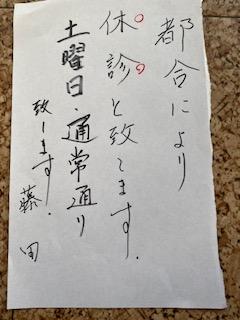 都合により
休診と致します.
土曜日・通常通り
致します.
藤田